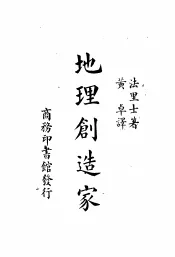 法里士著
黄卓譯
地理創造家
商務印書館發行